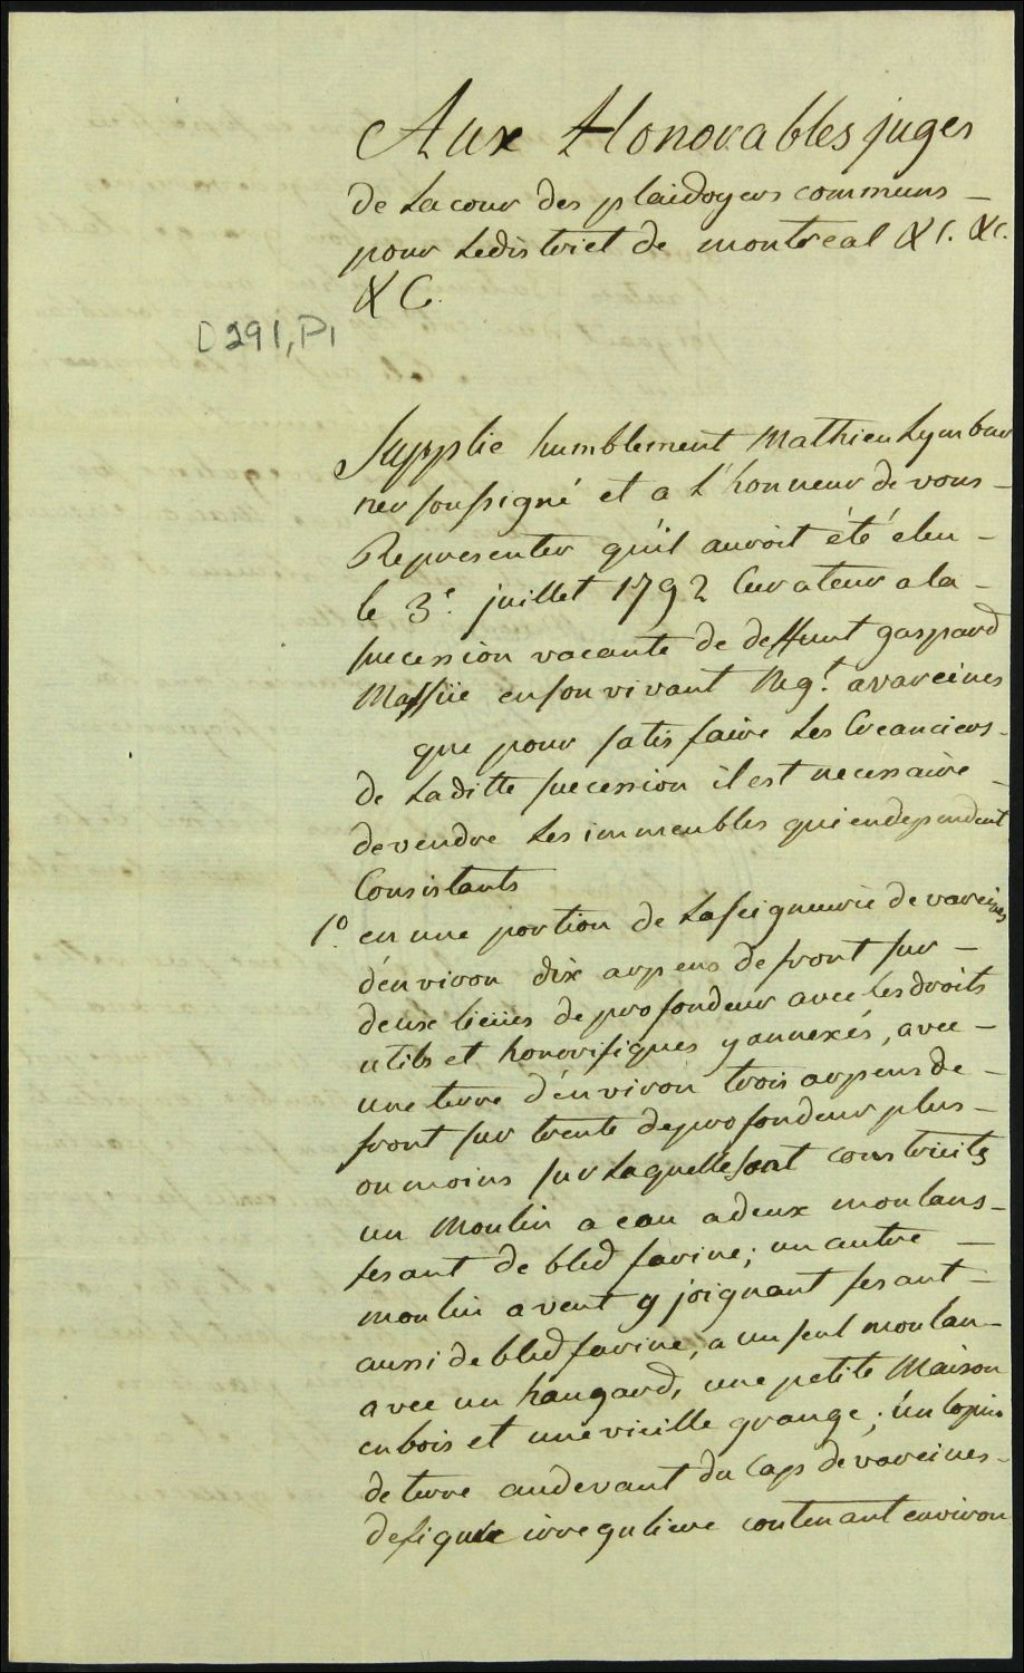 Aux Honorables juges
de La cour des plaidoyers communs –
pour Ledistrict de montreal &c. &c.
&c.
C291, P1
Supplie humblement Mathieu Lymbur
ner soussigné et a L'honneur de vous –
Representer qu'il auroit été eleu –
le 3e. juillet 1792 Curateur a la –
succession vacante de deffunt gaspard
Massüe en son vivant Negt. a vareines
que pour satisfaire Les Creanciers –
de Laditte succession il est necessaire –
de vendre Les immeubles qui endependent
Consistants
1o. en une portion de La seigneurie de vareines
d'environ dix arpens de front sur –
deux lieües de profondeur avec Les droits
utils et honorifiques y annexés, avec –
une terre d'environ trois arpens de –
front sur trente de profondeur plus –
ou moins sur Laquelle sont construits
un Moulin a eau a deux moulans –
fesant de bled farine; un autre –
moulin a vent y joignant fesant –
aussi de bled farine, a un seul moulan –
avec un hangard, une petite Maison
en bois et une vieille grange; un lopin
de terre audevant du Cap de vareines –
de figure irreguliere contenant environ